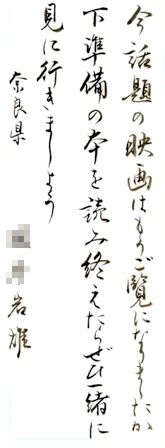 今話題の映画はもうご覧になりましたか
下準備の本を読み終えたらぜひ一緒に
見に行きましょう
奈良県
岩雄